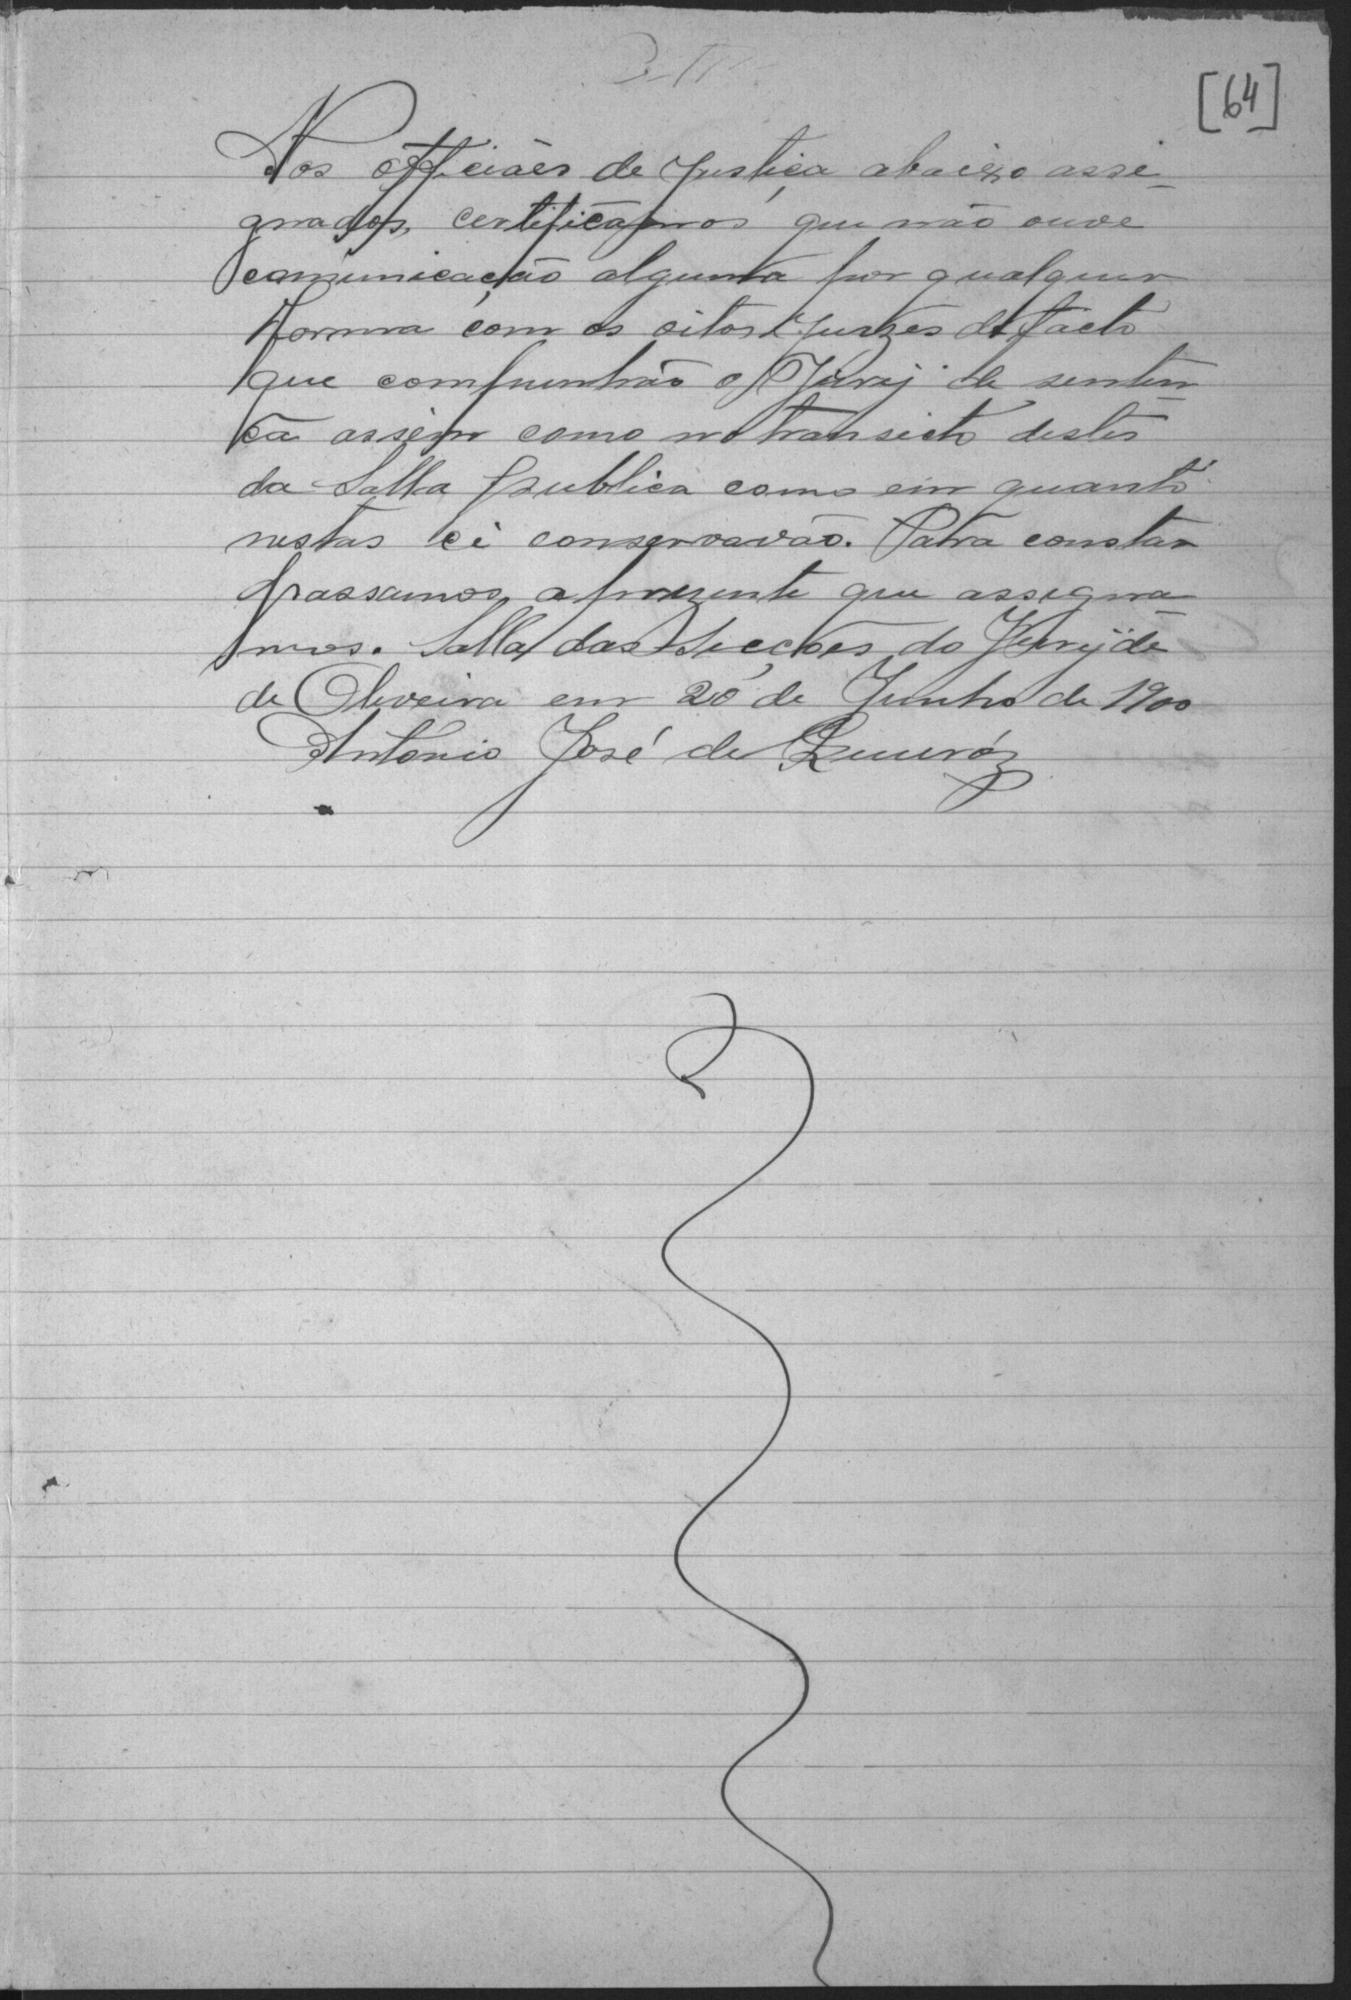 [64]
Nos officiães de Justiça abaicxo assi-
gnados, certificamos que não ouve
comunicação alguma por qualquer
forma com os oitos Juizes de facto
que compunhão o Jurij de senten-
ça assim como no transicto destes
da Salla publica como em quanto
nestas ci conservavão. Para constar
passamos a prezente que assigna
mos. Salla das Secções do Jurij de
de Oliveira em 20 de Junho de 1900
Antonio José de Queiróz